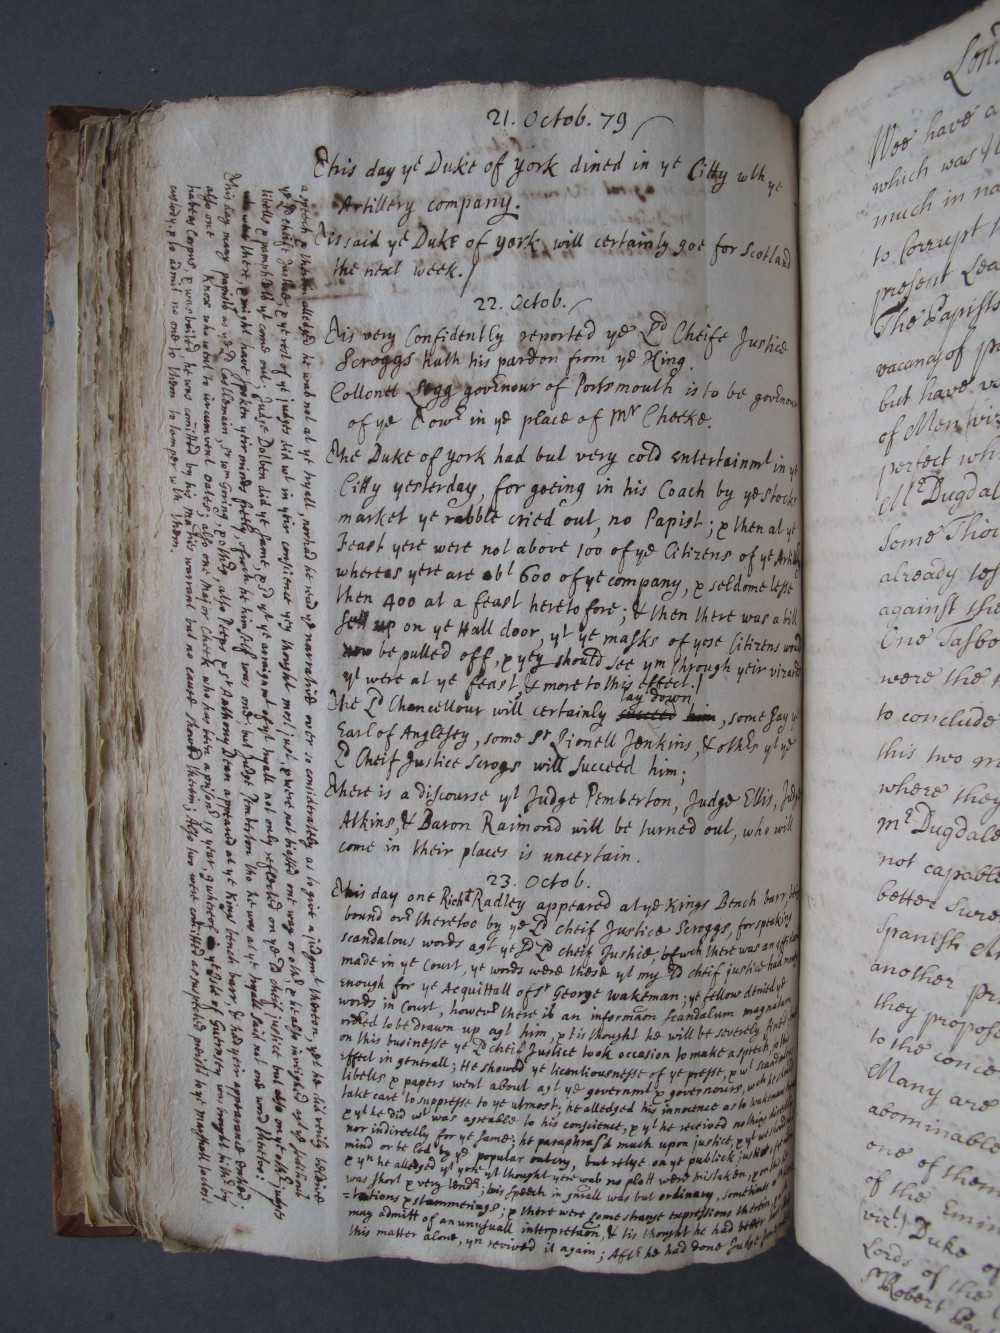 21. Octob. 79
This day ye Duke of York dined in ye Citty wth ye
Artillery company.
Tis said ye Duke of york will certainly goe for Scotland
the next week.
22. Octob.
Tis very Confidently reported ye Ld Cheife Justice
Scroggs hath his pardon from ye King.
Collonel Legg governour of Portsmouth is to be governour
of ye Towr in ye place of Mr Cheeke.
The Duke of York had but very cold Entertainmt in ye
Citty yesterday, for goeing in his Coach by ye Stocks
market ye rabble cried out, no Papist; & then at ye
Feast yere were not above 100 of ye Citizens of ye
whereas yere are abt 600 of ye company, & seldome lesse
then 400 at a feast heretofore; & then there was a bill
sett up on ye Hall door, yt ye masks of yose Citizens would
be pulled off, & yey should see ym through yeir vizards
yt were at ye feast, & more to this effect.
lay down
The Ld Chancellour will certainly succeed him, some say ye
Earl of Anglesey, some Sr Lionell Jenkins, & othrs yt ye
Ld Cheif Justice Scrogs will succeed him;
There is a discourse yt Judge Pemberton, Judge Ellis, Judge
Atkins, & Baron Raimond will be turned out, who will
come in their places is uncertain.
23. Octob.
This day one Richd Radley appeared at ye Kings Bench barr, being
bound ovr theretoo by ye Ld Cheif Justice Scroggs, for speaking
scandalous words agt ye Ld Cheif Justice, of wch there was an
made in ye Court, ye words were these yt my Ld cheif justice had
enough for ye Acquittall of Sr George Wakeman; ye fellow denied ye
words in Court, howevr there is an information scandalum magnatum
ordred to be drawn up agt him, & tis thought he will be severely fined;
on this businesse ye Ld cheif Justice took occasion to make a speech to this
effect in generall; He shewed ye licentiousnesse of ye presse, & wt scandalous
libells & papers went about agt ye governmt & governours, wch he should
take care to suppresse to ye utmost; he alledged his innocence as to Wakemans
& yt he did wt was agreable to his conscience, & yt he received nothing directly
nor indirectly for ye same; he paraphras'd much upon justice, & yt
mind or be led by ye popular outcry, but relye on ye publick justice
& yn he alledged yt yose yt thought yere was no plott were mistaken
was short & very; his speech in gnrall was but ordinary, sometimes
& stammerings; & there were some strange expressions therein,
may admitt of an unusuall interpretation, & tis thought he had better
this matter alone, yn revived it again; Aftr he had done Judge
a speech, & therein alledged he was not at ye tryall, notwthstanding he read ye narrative over so considerately as to give a judgmt thereon, yt he did verily beleive
ye Ld cheif Justice, & ye rest of ye judges did wt in yeir conscience yey thought most just, & were not biassed one way or othr, & he also inveighed agt ye seditious
libells & pamphlets yt come out; Judge Dolben did ye same, & yt ye arraignmt of yt tryall not only reflected on ye Ld cheif justice but also on ye othr judges
there, & might have spoken yeir minds freely, of wch he him self was one; but Judge Pemberton tho he was at ye tryall said not one word thereto:
This day many papists as ye Ld Castlemain, Sr Wm Goring, & othrs, also Peeps & Sr Anthony Dean appeared at ye Kings bench barr, & had yeir appearance
also one Knox who went to circumvent Oates; also one Major Cheek who has been a prisonr 19 years, 9 whereof at ye Isle of Guernsey was brought hithr by
habeas Corpus, & was bailed he was comitted by his maties warrant but no cause shewed therein; Also two were comitted as popish preists to ye marshall
custody, & to admit no one to them to tamper wth them.
Wee have a
which was
much in
to Corrupt
present
The Papists
vacancy of
but have
of Men
perfect
Mr Dugdal
Some
already
against the
One Tasbo
were the
to conclude
this two
where they
Mr Dugdale
not capable
better
Spanish
another
they propose
to the
Many are
abominable
one of them
of the
(vizt.) Duke of
Lords of the
Sr Robert